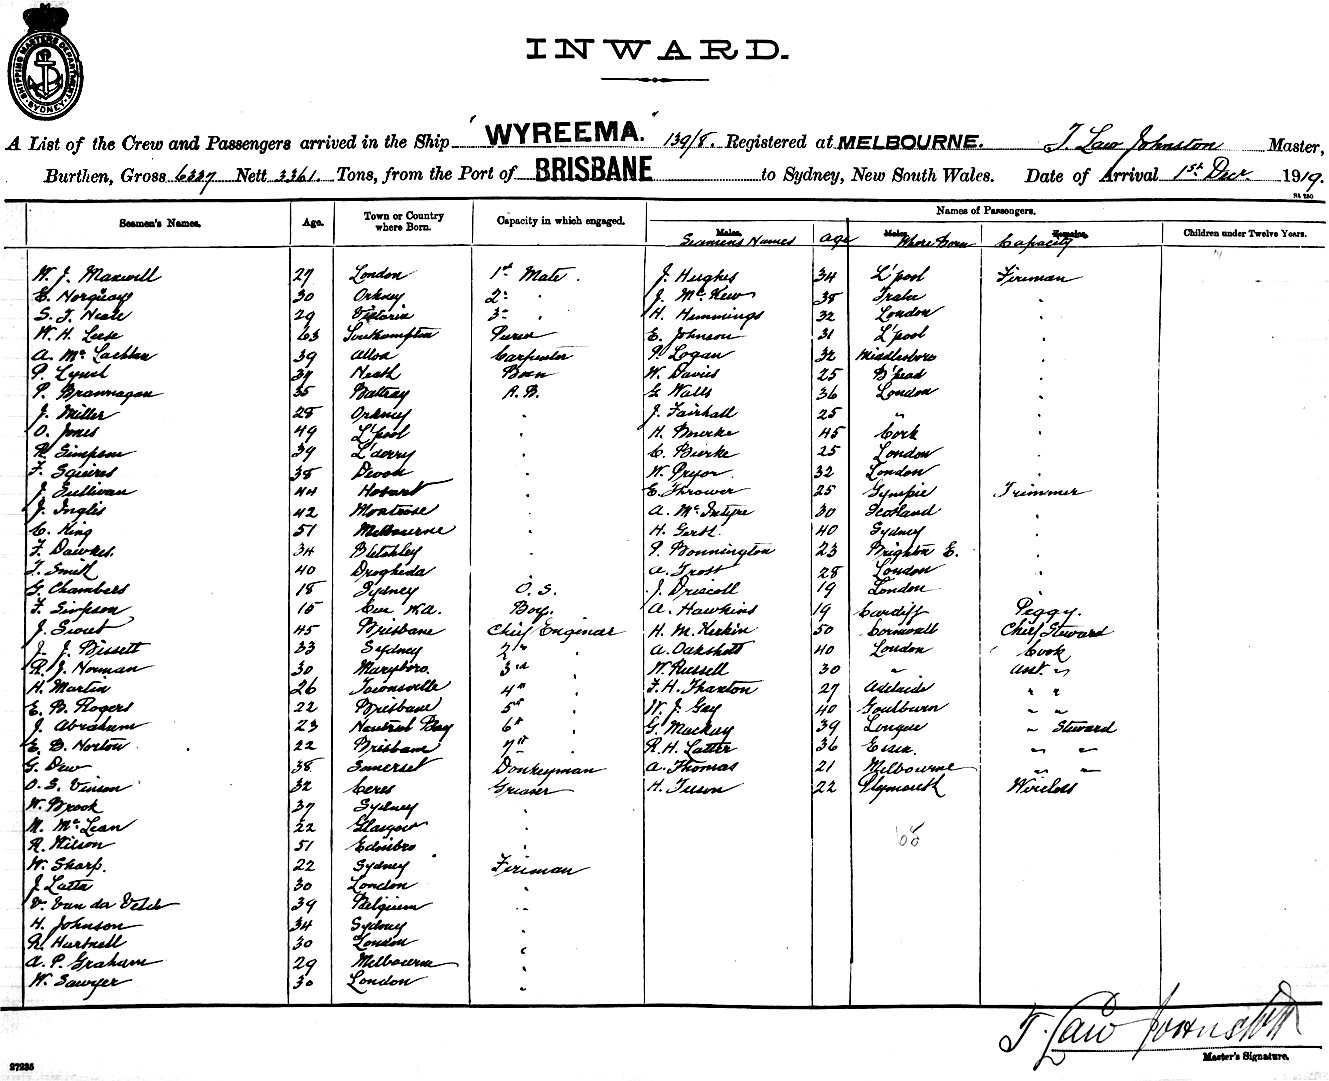 SHIPPING MASTERS DEPARTMENT SYDNEY
INWARD.
A List of the Crew and Passengers arrived in the Ship "WYREEMA." 139/8. Registered at MELBOURNE. T. Law Johnston Master,
Burthen, Gross 6327 Nett 3361. Tons, from the Port of BRISBANE to Sydney, New South Wales. Date of Arrival 1st Dec. 1919.
Seamen's Names. Age. Town or Country where Born. Capacity in which engaged. Names of Passengers.
Males. Males. Females. Children under Twelve Years.
Seamens Names age Where Born Capacity
W. J. Maxwell 27 London 1st Mate. J. Hughes 34 L'pool Fireman
E. Norquay 30 Orkney 2nd " J. McKew 38 Tralee "
S. T. Neale 29 Victoria 3rd " H. Hemmings 32 London "
W. H. Leese 63 Southampton Purser E. Johnson 31 L'pool "
A. McLachlan 39 Alloa Carpenter P. Logan 32 Middlesboro "
P. Lynch 37 Neath Bosn W. Davies 25 B'head "
P. Brannagan 35 Baltray A.B. G. Walls 36 London "
J. Miller 28 Orkney " J. Fairhall 25 " "
O. Jones 49 L'pool " H. Bourke 45 Cork "
R. Simpson 39 L'derry " C. Burke 25 London "
F. Squires 38 Devon " W. Pryor 32 London "
J. Sullivan 44 Hobart " E. Thrower 25 Gympie Trimmer
J. Inglis 42 Montrose " A. McIntyre 30 Scotland "
C. King 51 Melbourne " H. 40 Sydney "
F. Dawkes. 34 Bletchley " P. Bonnington 23 Brighton E. "
T. Smith 40 Drogheda " A. Trost 28 London "
G. Chambers 18 Sydney O.S. J. Driscoll 19 London "
F. Simpson 15 W.A. Boy. A. Hawkins 19 Cardiff Peggy.
J. Sweet 45 Brisbane Chief Enginar H. M. Kerkin 50 Cornwall Chief Steward
J. J. Bissett 33 Sydney 2nd " A. Oakshott 40 London Cook
R. J. Norman 30 Maryboro. 3rd " W. Russell 30 " Asst. "
H. Martin 26 Townsville 4th " F. H. Thaxton 27 Adelaide " "
E. B. Rogers 22 Brisbane 5th " W. J. Gay 40 Goulburn " "
J. Abraham 23 Neutral Bay 6th " G. Mackay 39 " Steward
E. B. Norton 22 Brisbane 7th " R. H. Latter 36 Essex " "
G. Dew 38 Somerset Donkeyman A. Thomas 21 Melbourne " "
O. S. Vinson 32 Ceres Greaser H. Tuson 22 Plymouth Wireless
W. Brook 37 Sydney "
M. McLean 22 Glasgow "
R. Wilson 51 Edinbro "
W. Sharp. 22 Sydney Fireman
J. Latta 30 London "
V. Van der 39 Belgium "
H. Johnson 34 Sydney "
R. Hartnell 30 London "
A. P. Graham 29 Melbourne "
W. Sawyer 30 London "
65
T. Law Johnston
Master's Signature.
27235